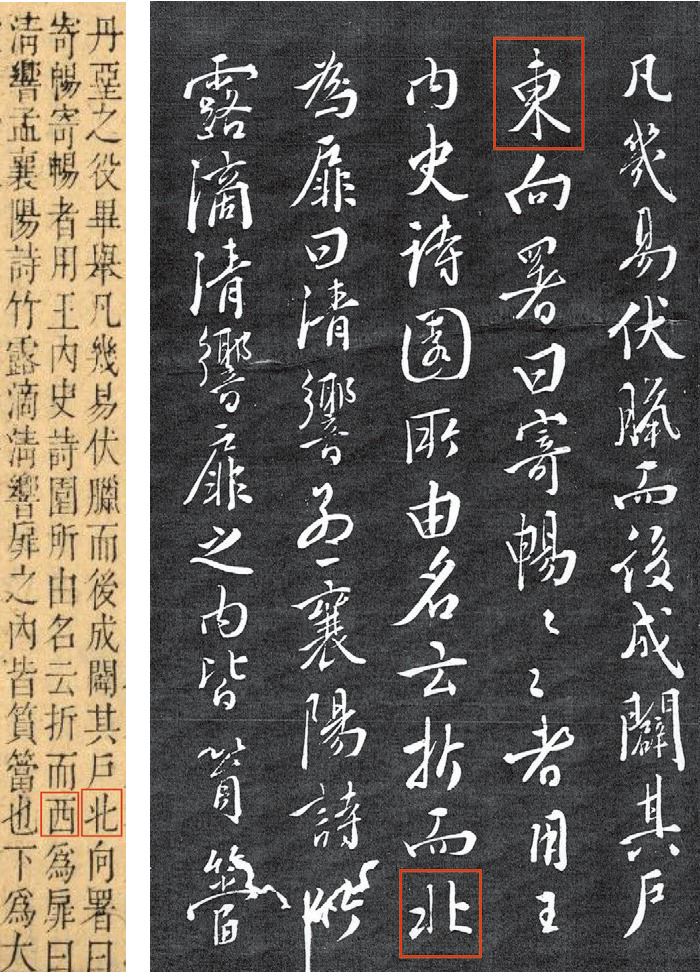 凡幾易伏臘而後成闢其戶
東向署曰寄暢〻〻者用王
内史詩園所由名云折而北
為扉曰清響孟襄陽詩竹
露滴清響扉之内皆篔簹
丹堊之役畢舉凡幾易伏臘而後成闢其戶北向署曰
寄暢寄暢者用王内史詩園所由名云折而西爲扉曰
清響孟襄陽詩竹露滴清響扉之内皆篔簹也下爲大